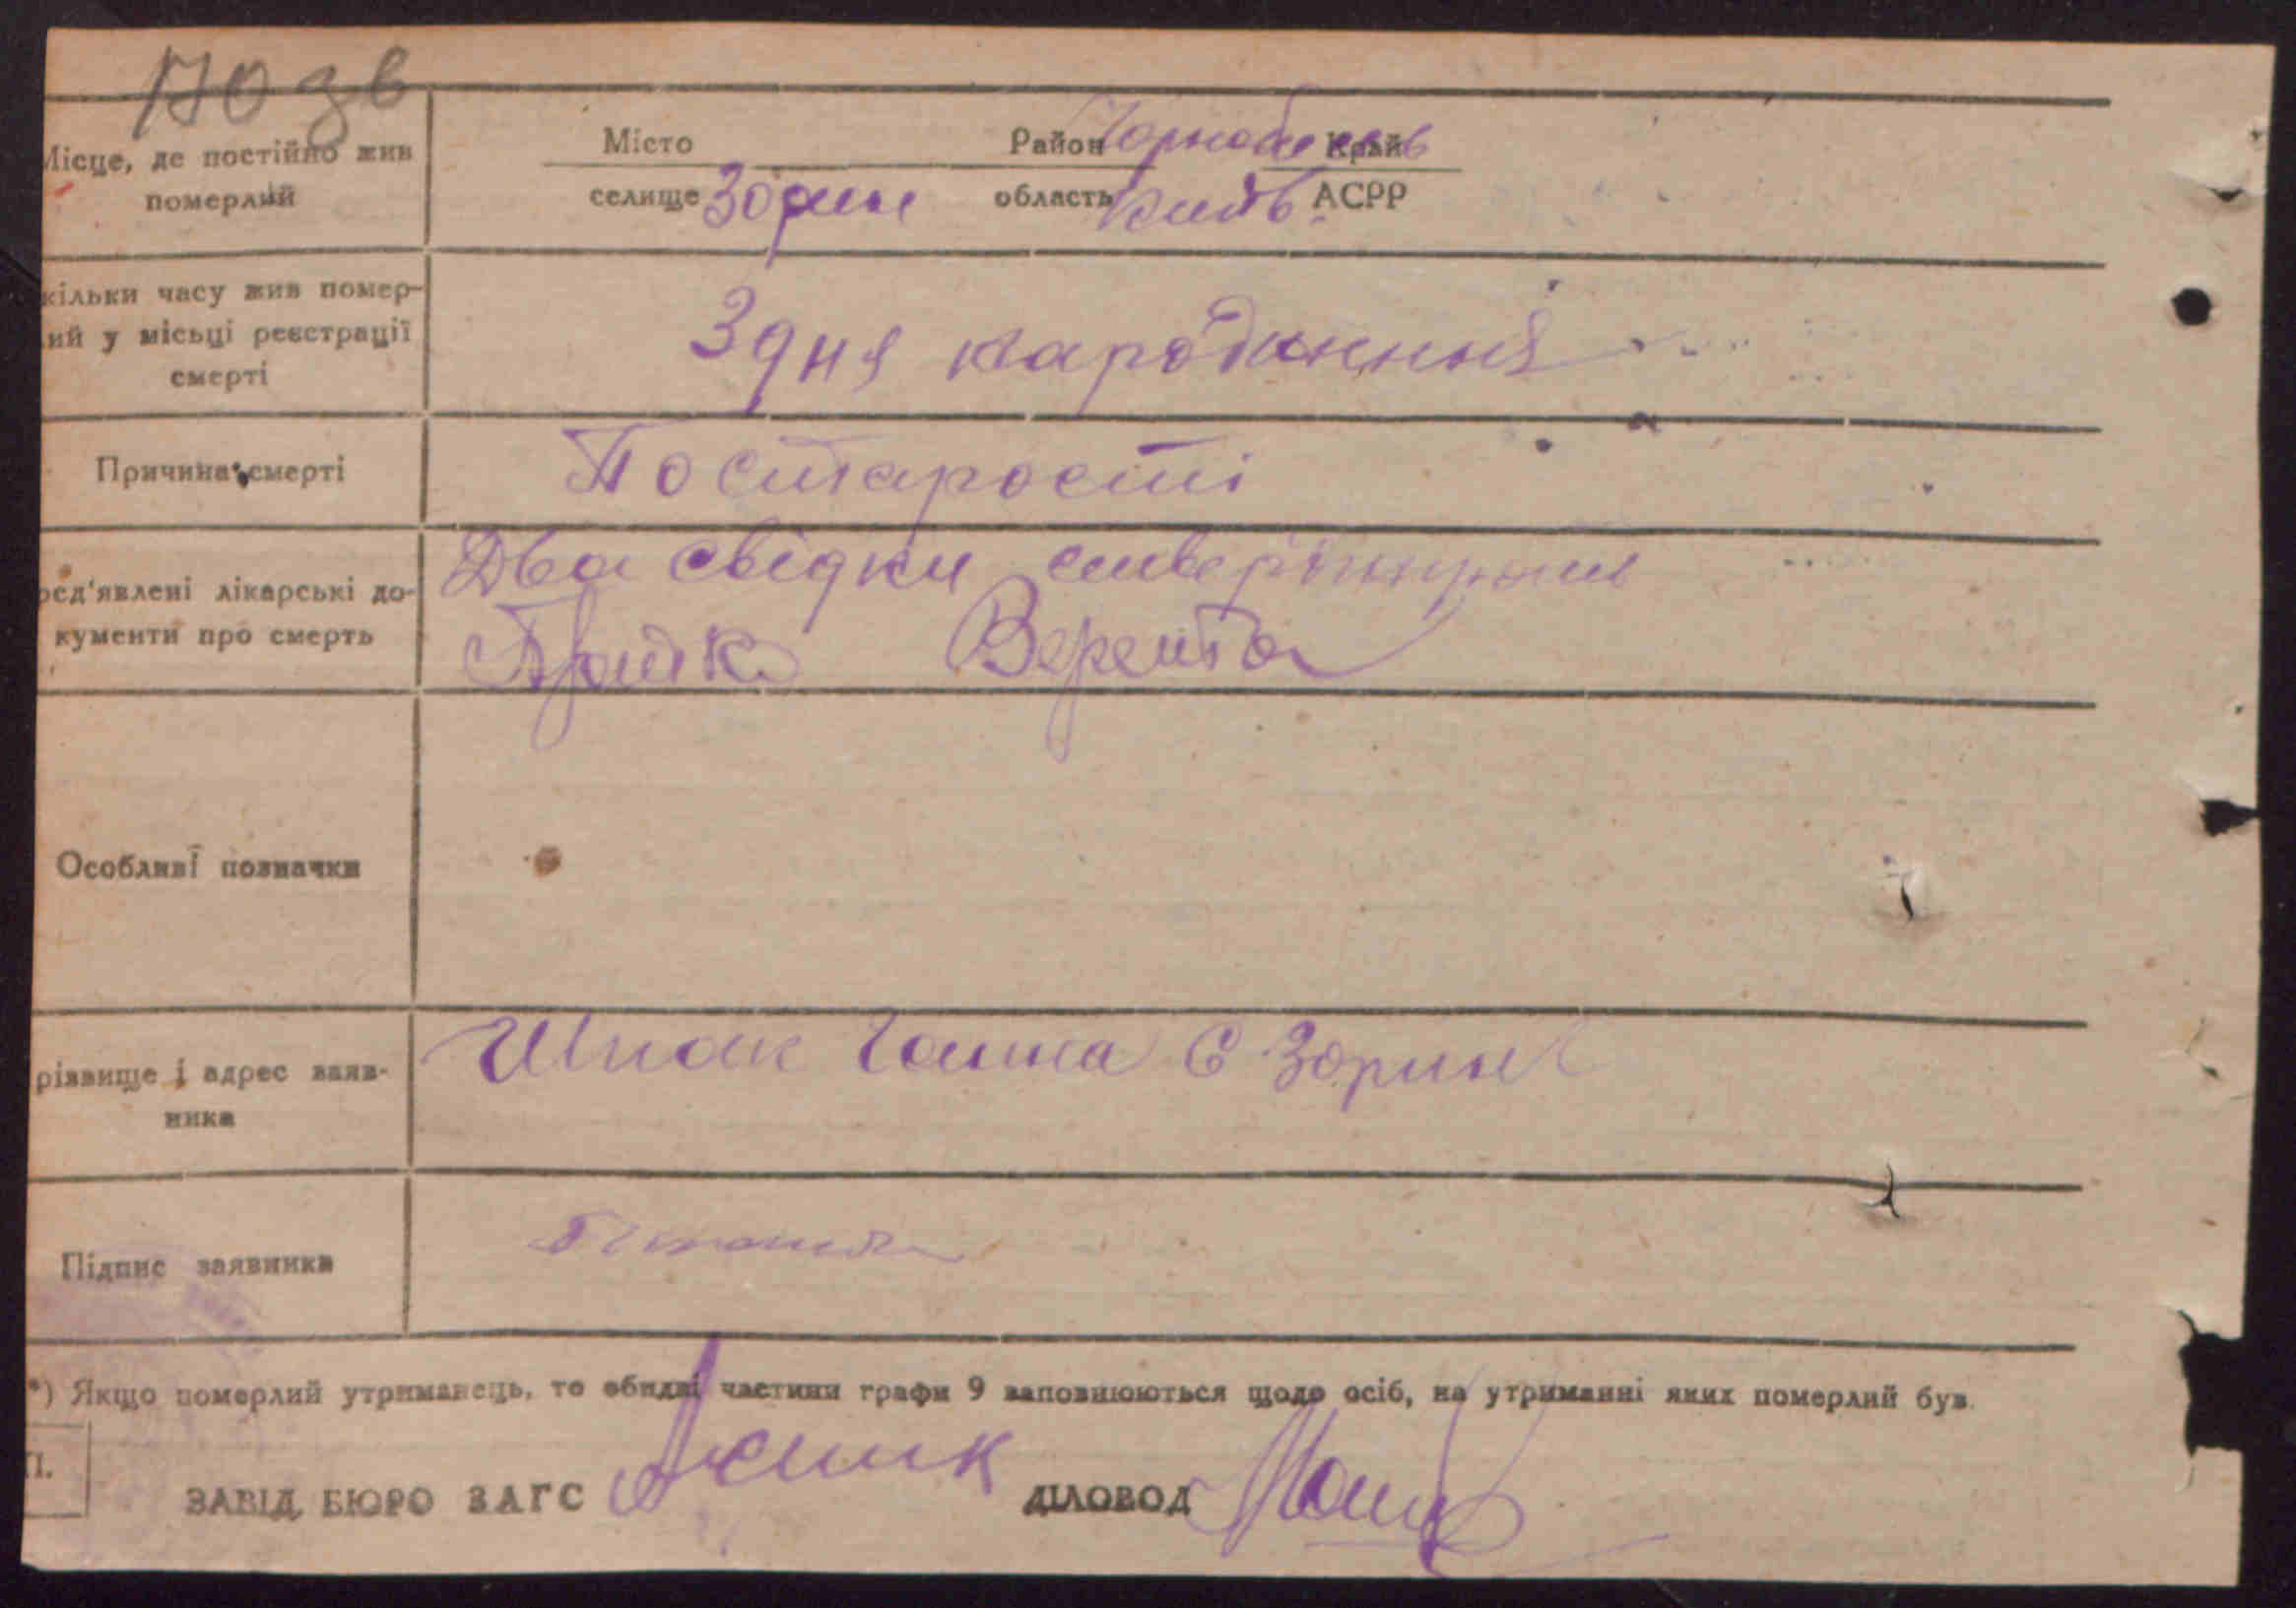 170 зв
Місце, де постійно жив
померлий
Місто
селище Зорин
Район Чорнобильв Край
область Київ. АСРР
кільки часу жив помер-
ий у місьці реєстрації
смерті
З дня народження
Причина смерті
По старості
ред'явлені лікарські до-
кументи про смерть
Два свідки
Веремта
Особливї позначки
різвище і адрес заяв-
ника
Шпак Ганна С Зорин
Підпис заявника
*) Якщо померлий утриманець, то обидві частини графи 9 заповнюються щодо осіб, на утриманні яких померлий був.
П.
ЗАВІД. БЮРО ЗАГС
ДІЛОВОД